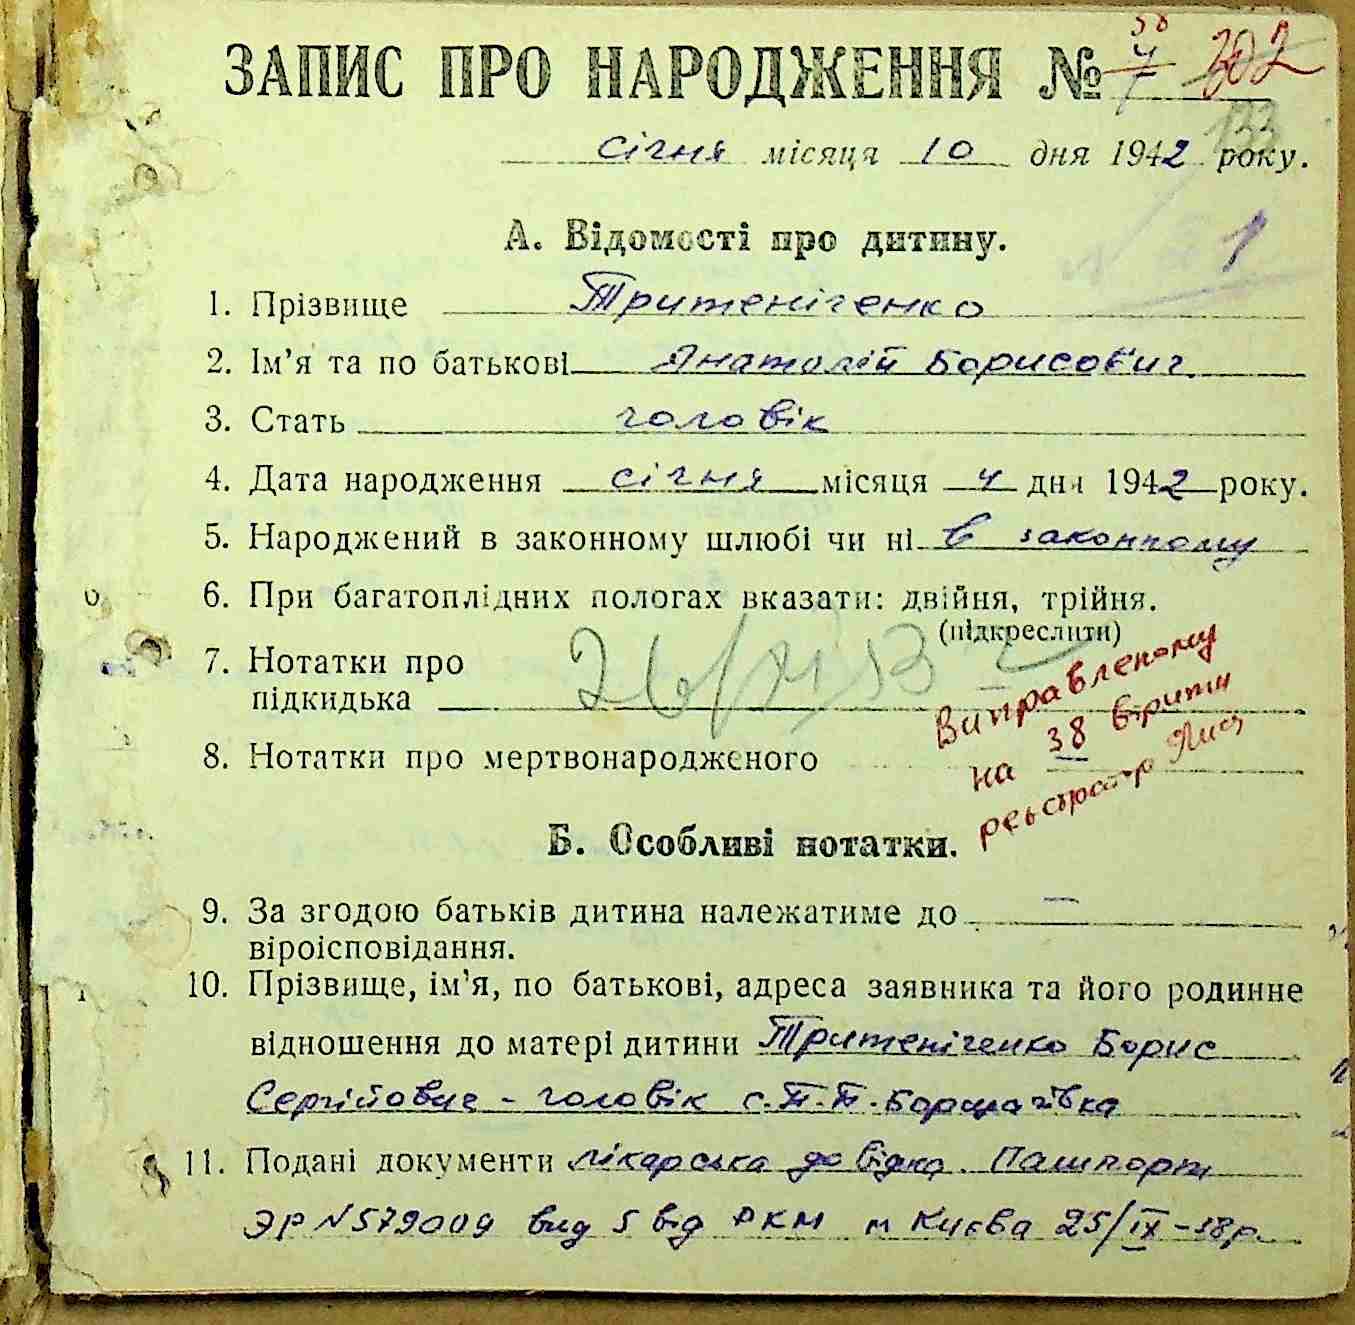 ЗАПИС ПРО НАРОДЖЕННЯ № 4 38 202
133
січня місяця 10 дня 1942 року.
1
А. Відомості про дитину.
1. Прізвище Притеніченко
2. Ім’я та по батькові Анатолій Борисович
3. Стать чоловік
4. Дата народження січня місяця 4 дня 1942 року.
5. Народжений в законному шлюбі чи ні в законному
6. При багатоплідних пологах вказати: двійня, трійня.
(підкреслити)
7. Нотатки про
підкидька
Виправленому
на 38 вірити
8. Нотатки про мертвонародженого
реєстратор
Б. Особливі нотатки.
9. За згодою батьків дитина належатиме до —
віроісповідання.
10. Прізвище, ім’я, по батькові, адреса заявника та його родинне
відношення до матері дитини Притеніченко Борис
Сергійович - чоловік с. П. П. Борщагівка
11. Подані документи лікарська довідка. Пашпорт
ЭР №579009 вид 5 від РКМ м Києва 25/IX-38р.